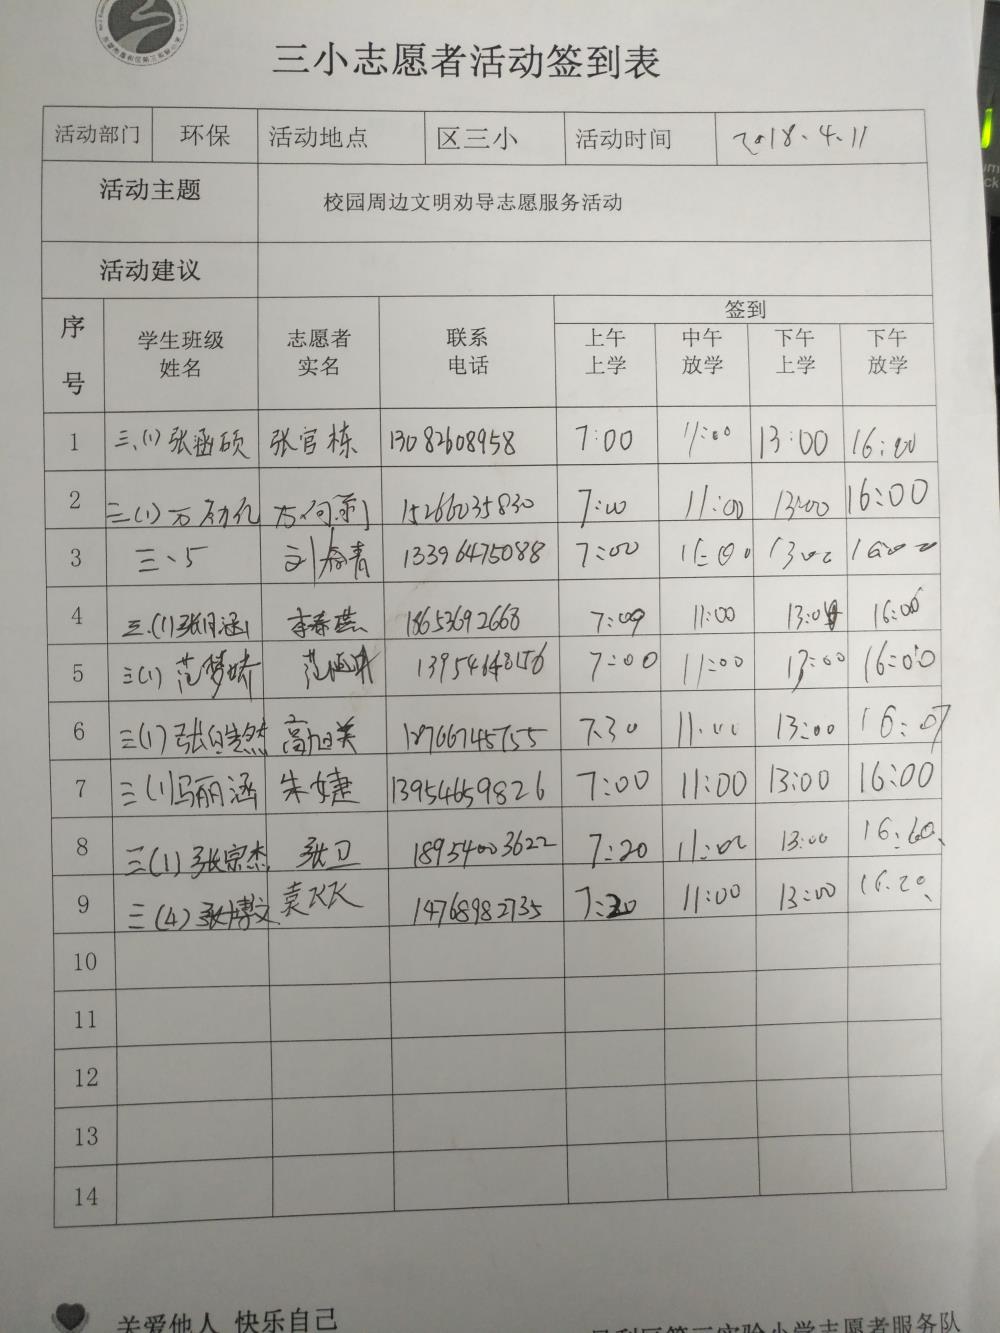 三小志愿者活动签到表
活动部门 环保 活动地点 区三小 活动时间 2018.4.11
活动主题 校园周边文明劝导志愿服务活动
活动建议
序号 学生班级姓名 志愿者实名 联系电话 签到
上午上学 中午放学 下午上学 下午放学
1 三、(1)张涵硕 张官栋 13082608958 7:00 11:00 13:00 16:00
2 三(1)万 15266035830 7:00 11:00 13:00 16:00
3 三、5 刘春青 13396475088 7:00 11:00 13:00 16:00
4 三.(1)张月涵 李春燕 18653692668 7:00 11:00 13:00 16:00
5 三(1)范梦娇 范 13954648156 7:00 11:00 13:00 16:00
6 三(1)张皓然 高旭美 18766745755 7:30 11:00 13:00 16:07
7 三(1)马丽涵 朱婕 13954659826 7:00 11:00 13:00 16:00
8 三(1)张宗杰 张卫 18954003622 7:20 11:00 13:00
9 三(4)张博文 袁 14768982735 7:20 11:00 13:00 16.20
10
11
12
13
14
关爱他人 快乐自己
区第三实验小学志愿者服务队